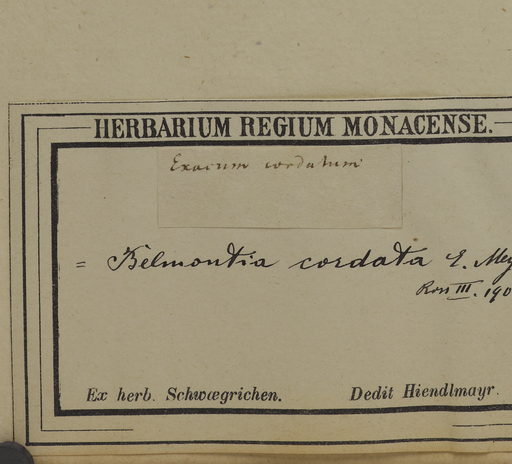 HERBARIUM REGIUM MONACENSE.
Exacum cordatum
= Belmontia cordata E. Mey
Ross III. 190
Ex herb. Schwægrichen. Dedit Hiendlmayr.